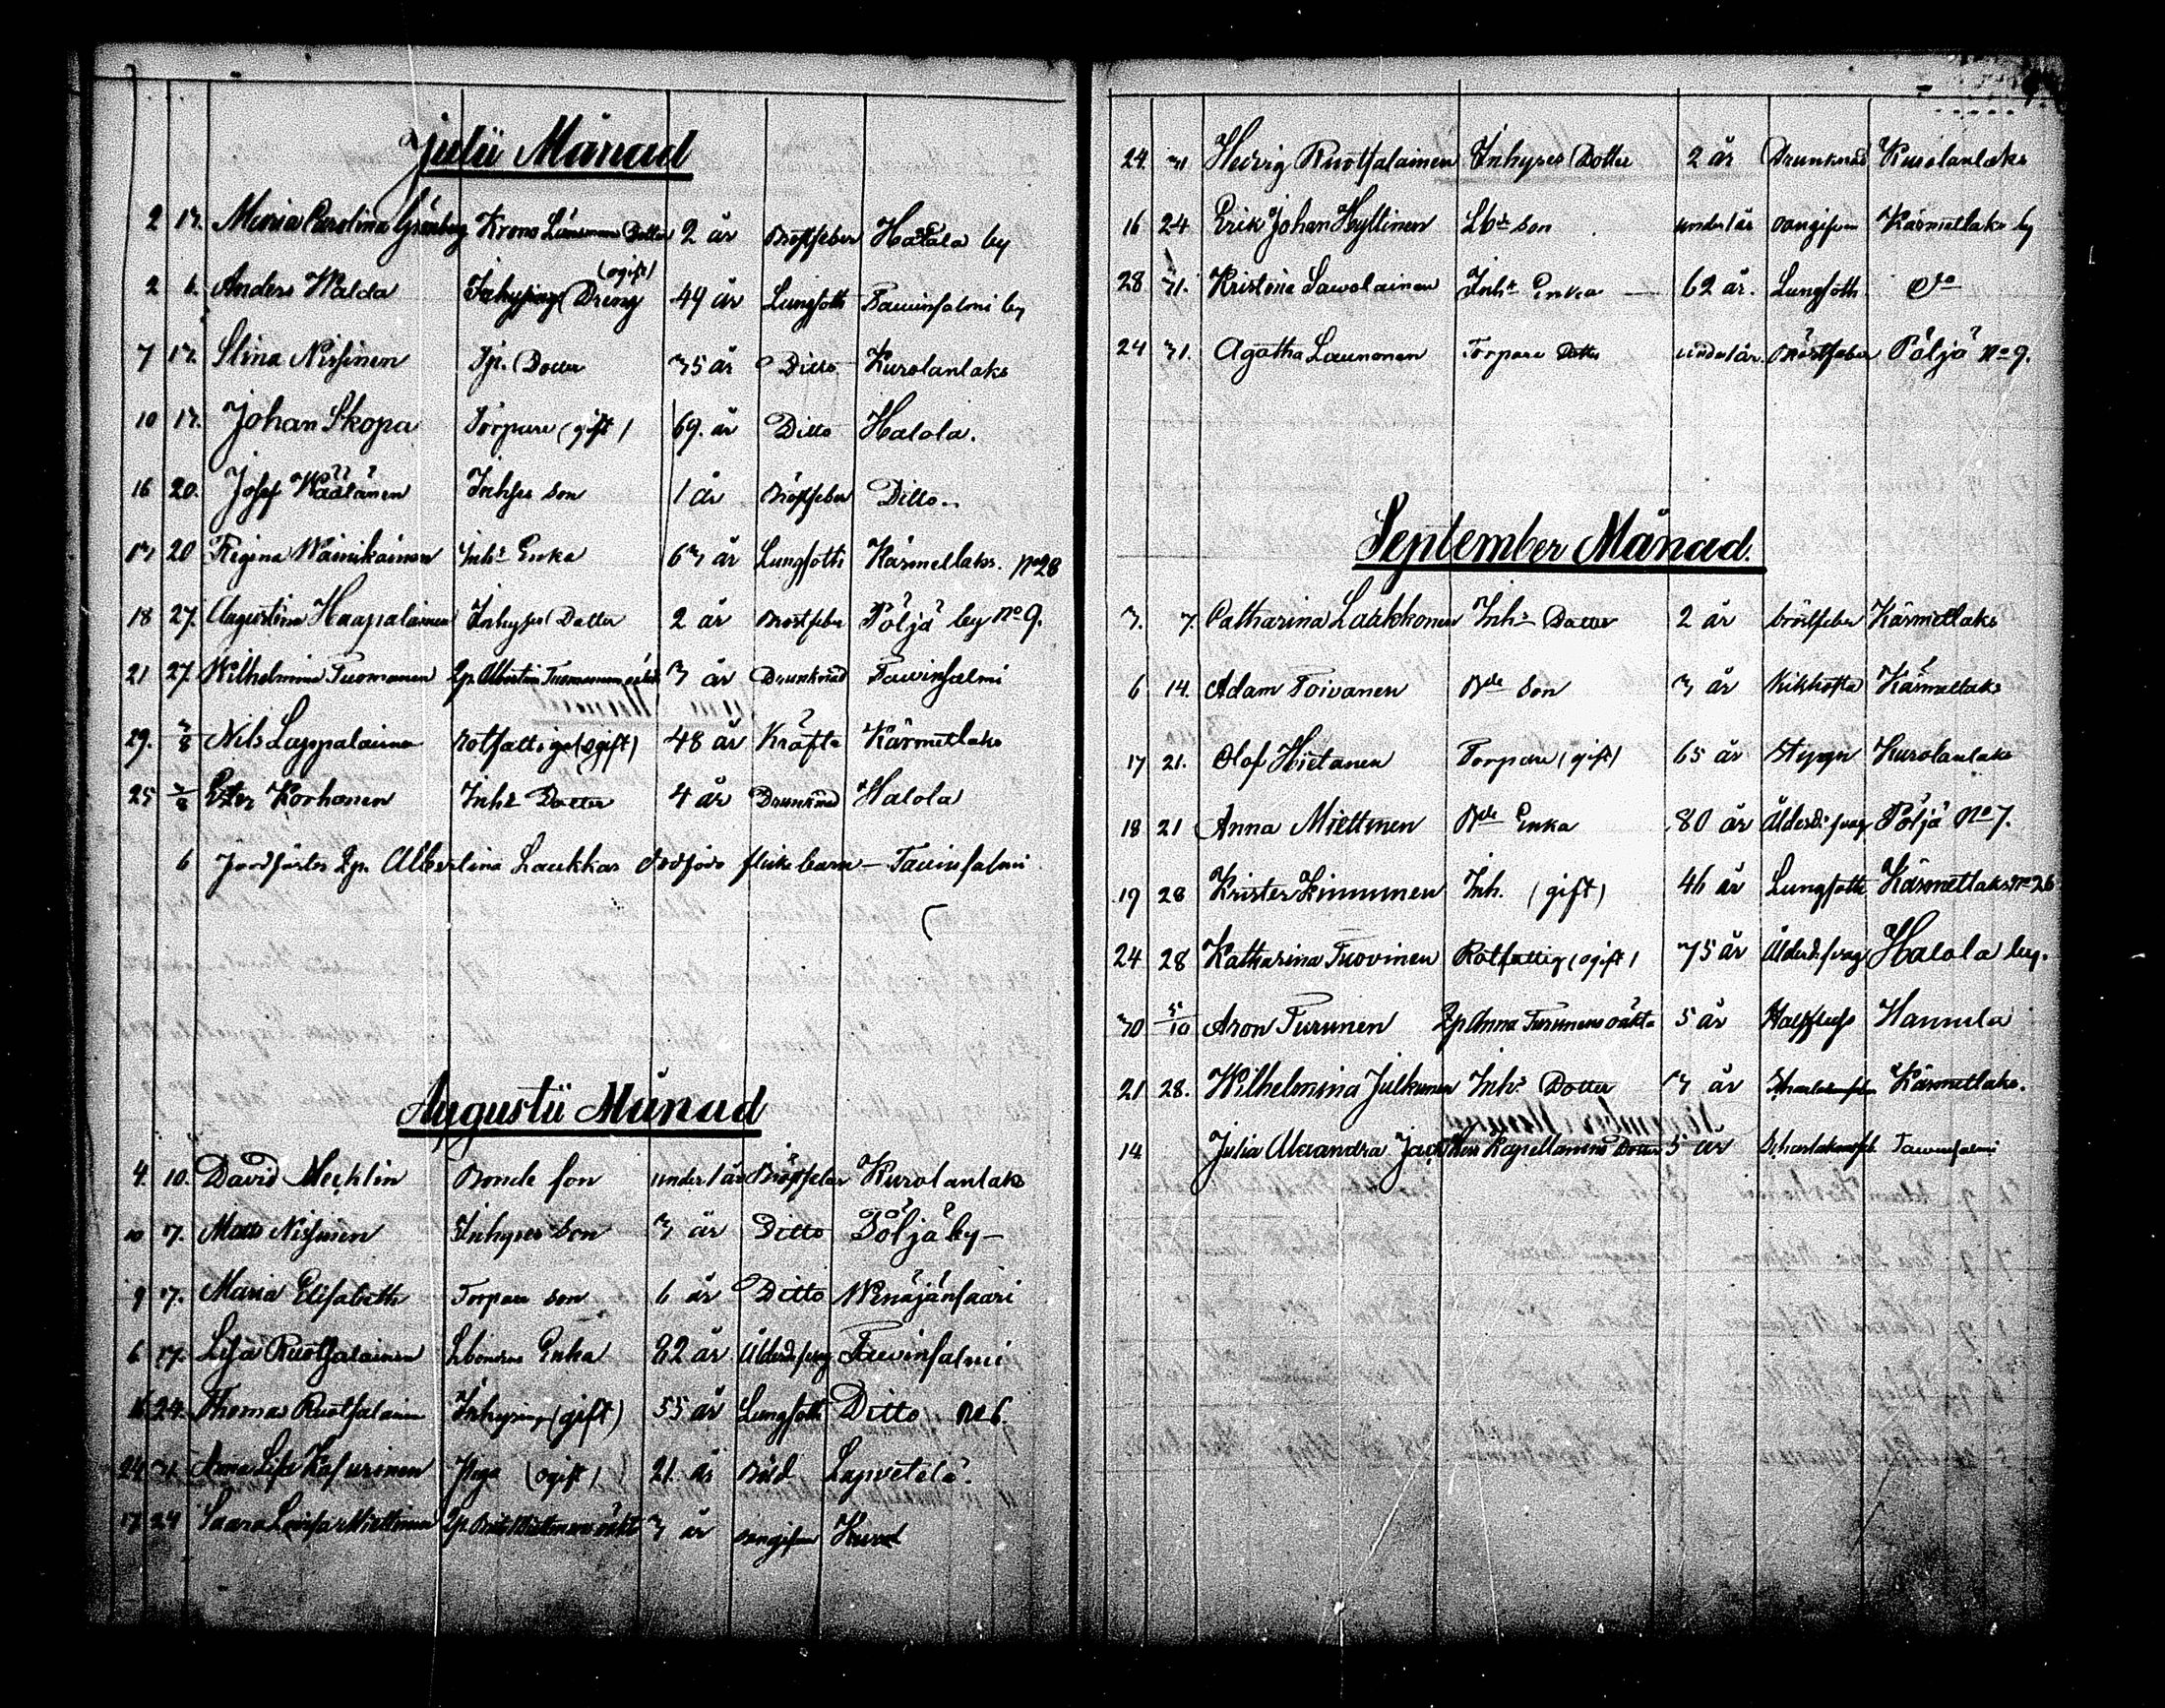 Julii Månad
2 13. Maria Carolina Grönberg Krono Länsmans Dotter 2 år Bröstfeber Halola by
2 6. Anders Walda Inhysing Dreng (ogift) 49 år Lungsoth Tauvinsalmi by
7 13. Stina Nissinen Tp. Dotter 35 år Ditto Kurolanlaks
10 13. Johan Skopa Torpare (gift) 69. år Ditto Halola.
16 20. Josef Wäätänen Inhses son 1 år Bröstfeber Ditto..
13 20 Regina Wainikainen Inhs Enka 63 år Lungsoth Kärmetlaks. No 28
18 27. Augustina Haapalainen Inhyses Dotter 2 år Bröstfeber Pöljä by no 9.
21 27. Wilhelmina Tuomanen Qp. Albertina Tuomanens oäkta 3 år Drunknad Tauvinsalmi
29. 3/8 Nils Lappalainen Rotfattige (ogift) 48 år Kräfta Kärmetlaks
25 3/8 Ester Korhonen Inhs Dotter 4 år Drunknad Halola
6 Jordfästes Qp. Albertina Laukkas dödfödo flicke barn — Tauvinsalmi
Augustii Månad
4. 10. David Mecklin Bonde son under 1 år Bröstfeber Kurolanlaks
10 17. Mats Nissinen Inhyses Son 3 år Ditto Pöljä by —
9 17. Maria Elisabeth Torpare son 6 år Ditto Wenäjänsaari
6 17. Lisa Ruotsalainen Lbondens Enka 82 år Ålderd.svag Tauvinsalmi
16 24. Thomas Ruotsalainen Inhysing (gift) 55 år Lungsoth Ditto No 6.
24 31. Anna Lisa Kasurinen Piga (ogift) 21 år Böld Lapvetelä.
17 24 Saara Lovisa Miettinen Qp. Brita Miettinens oäkt 3 år oangifven
24. 31 Hedvig Ruotsalainen Inhyses Dotter 2 år Drunknad Kurolanlaks
16 24 Erik Johan Hyttinen Lbde son under 1 år oangifven Kärmetlaks by
28 31. Kristina Savolainen Inhs Enka — 62 år. Lungsoth
24 31. Agatha Launonen Torpare Dotter under 1 år. Bröstfeber Pöljä No 9.
September Månad.
3. 7. Catharina Laakkonen Inhs Dotter 2 år bröstfeber Kärmetlaks
6 14. Adam Toivanen Bde son 3 år Kikhosta Kärmetlaks
17 21. Olof Hietanen Torpare (gift) 65 år Styngn Kurolanlaks
18 21 Anna Miettinen Bde Enka 80 år Ålderd.svag Pöljä No 7.
19 28 Krister Kinnunen Inh. (gift) 46 år Lungsoth Kärmetlaks No 26
24 28 Katharina Tuovinen Rotfattig (ogift) 75 år Ålderd.svag Halola by.
30 5/10 Aron Turunen Qp Anna Turunens oäkta 5 år Halsfluss Hamula
21 28. Wilhelmina Julkunen Inhs Dotter 3 år Scharlakansfeb Kärmetlaks.
14. Julia Alexandra Kapellanens Dotter 5 år Scharlakansfb. Tauvinsalmi